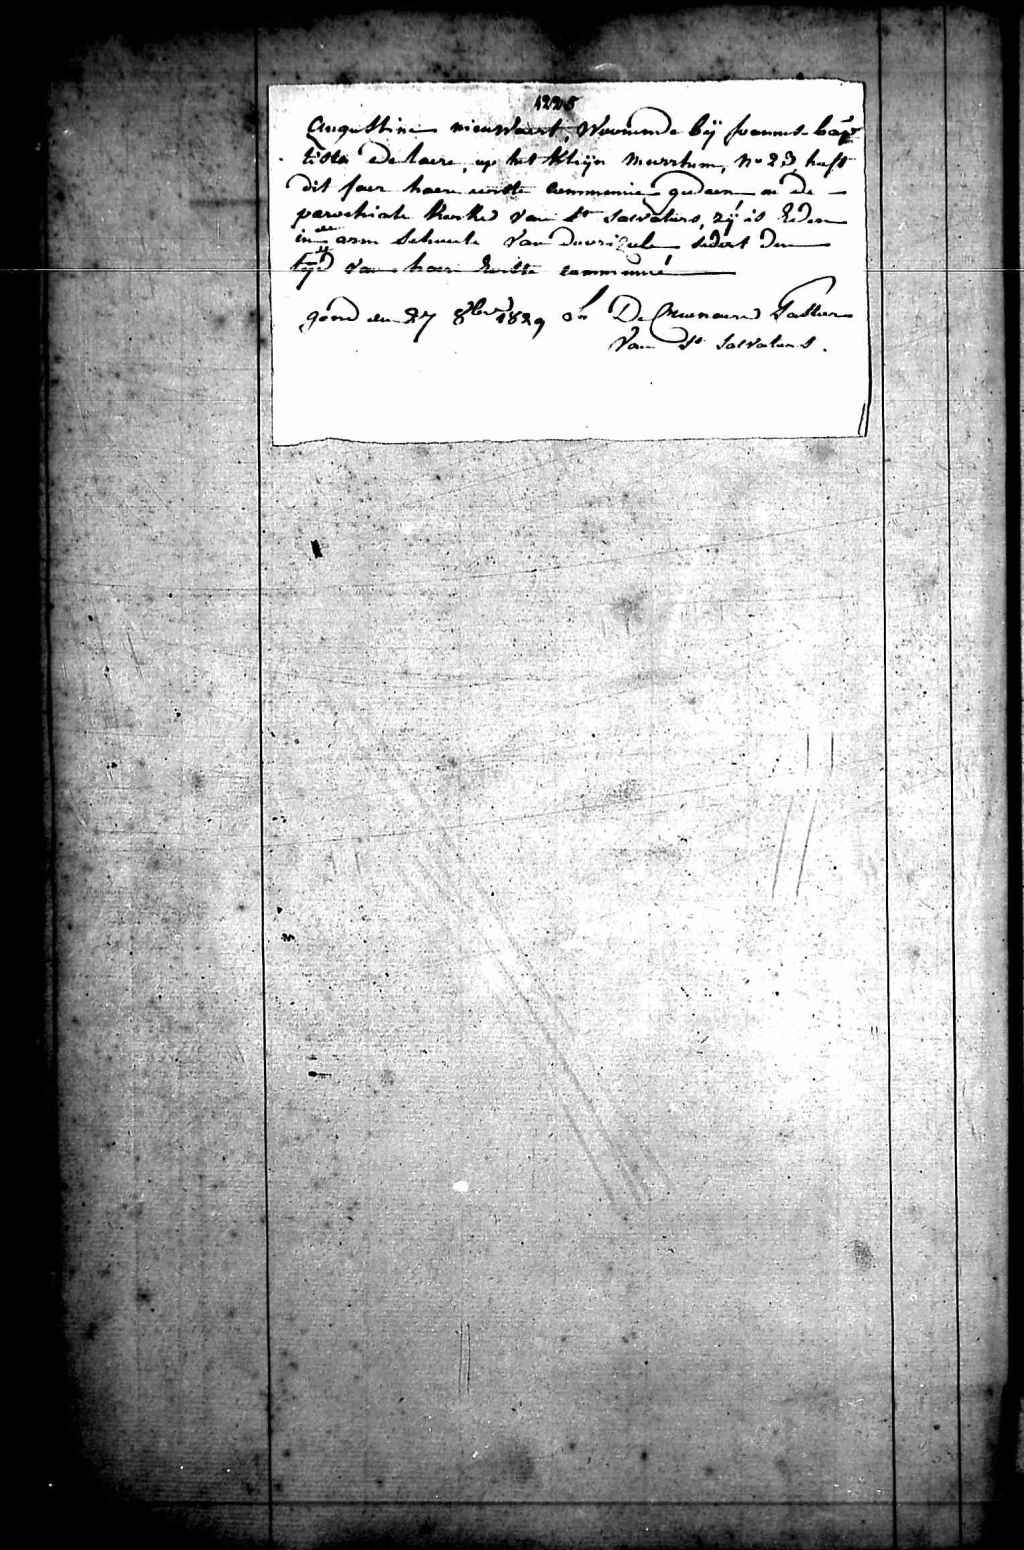 1225
Augustine nieuwlaert, Woonende bij Joannes-bap
tista De laere, op het kleijn Meerhem, N° 23 heeft
dit jaer haere eerste communie gedaen in de
parochiale kerke van St salvators, zij is heden
in arm schoole van sedert den
tijd van haere eerste communie
gend den 27 8ber 1829 De Pastor
van St salvators.